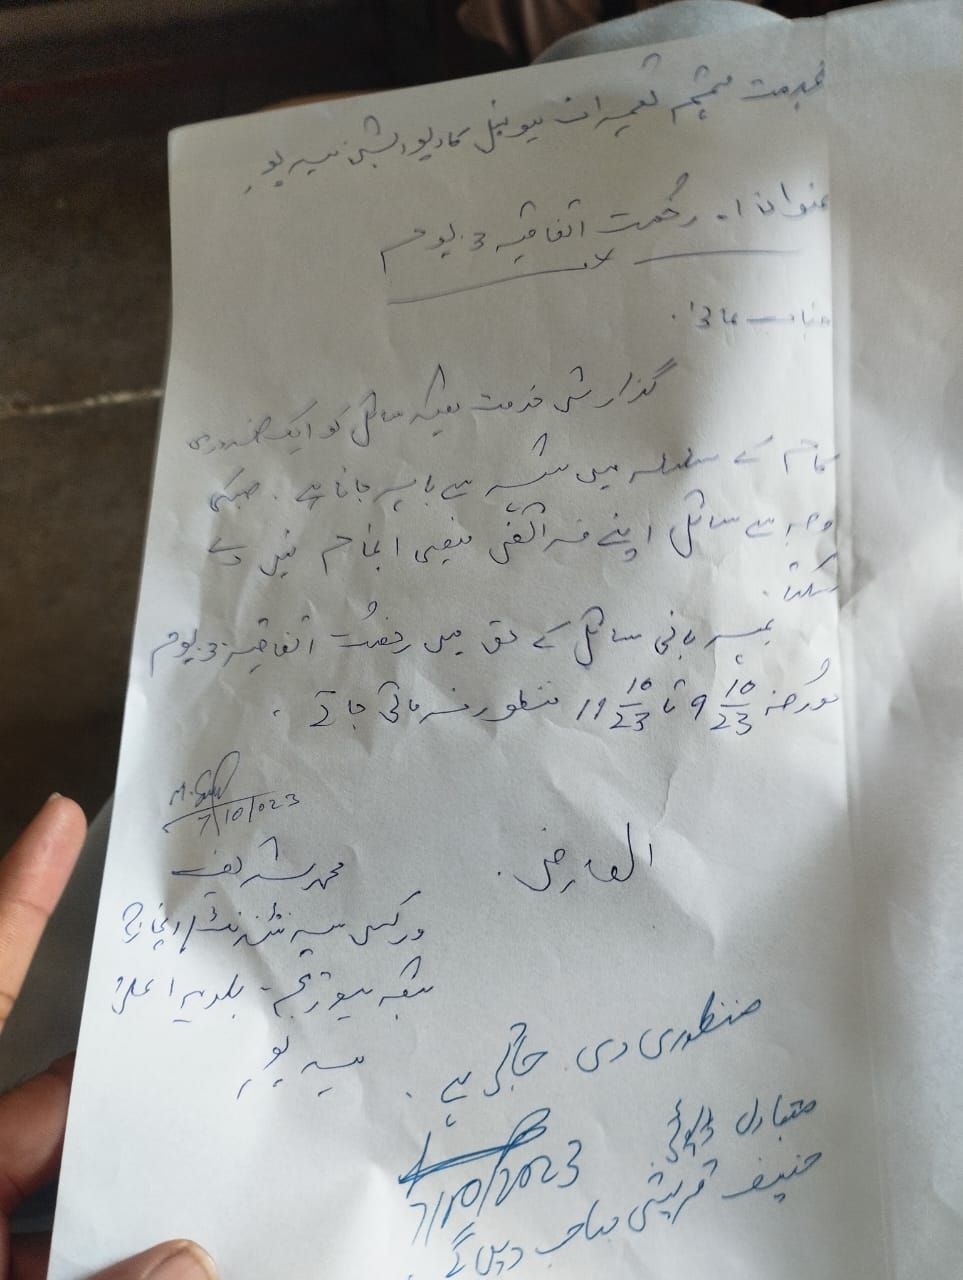 بخدمت مہتمم تعمیرات میونسپل کارپوریشن میرپور
عنوان :۔ رخصت اتفاقیہ 3 یوم
جناب عالی!
گذارش خدمت ہیکہ سائل کو ایک ضروری
کام کے سلسلہ میں شہر سے باہر جانا ہے ۔ جسکی
وجہ سے سائل اپنے فرائض منصبی انجام نہیں دے
سکتا ۔
بمہربانی سائل کے حق میں رخصت اتفاقیہ 3 یوم
مورخہ 9 10/23 تا 11 10/23 منظور فرمائی جائے ۔
7/10/023
العارض
محمد شریف
ورکس سپرنٹنڈنٹ / انچارج
شعبہ سیوریج ۔ بلدیہ اعلیٰ
میرپور
منظوری دی جاتی ہے ۔
7/10/2023
متبادل ڈیوٹی
حنیف قریشی صاحب دیں گے ۔